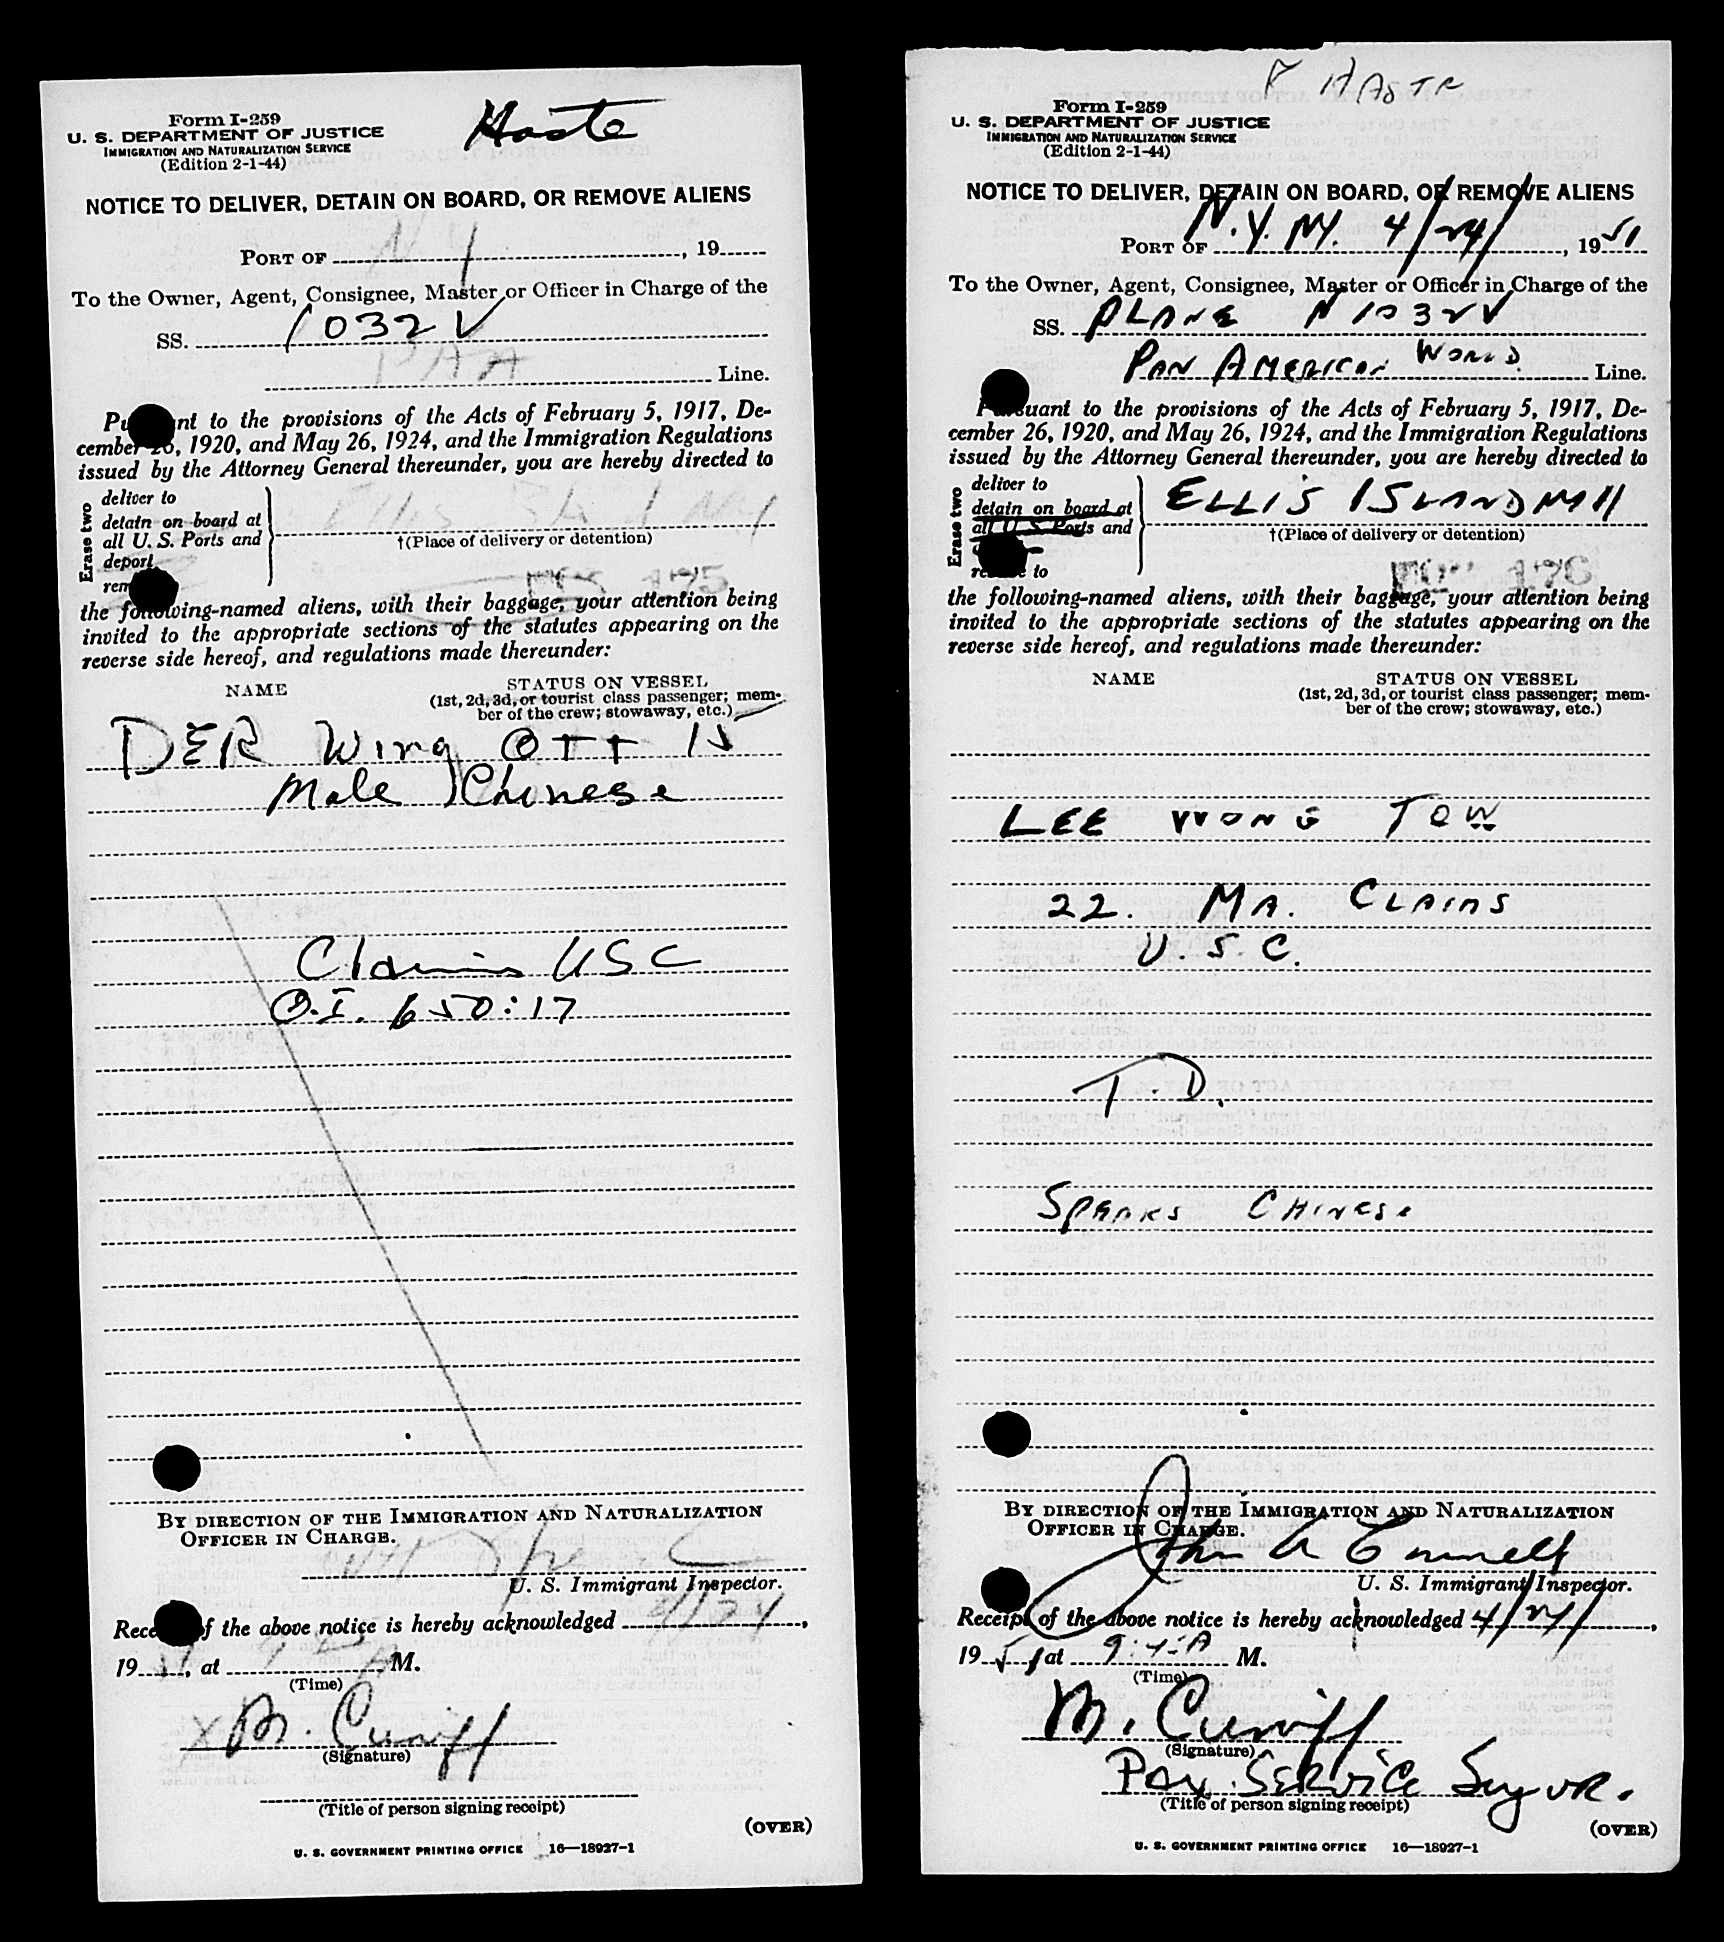 Haste
Form I-259
U. S. DEPARTMENT OF JUSTICE
IMMIGRATION AND NATURALIZATION SERVICE
(Edition 2-1-44)
NOTICE TO DELIVER, DETAIN ON BOARD, OR REMOVE ALIENS
PORT OF N Y, 19
To the Owner, Agent, Consignee, Master or Officer in Charge of the
SS. 1032 V
PAA Line.
Pu nt to the provisions of the Acts of February 5, 1917, De-
cember 26, 1920, and May 26, 1924, and the Immigration Regulations
issued by the Attorney General thereunder, you are hereby directed to
Erase two
deliver to
detain on board at
all U. S. Ports and
deport
rem
Ellis Isl NY
†(Place of delivery or detention)
175
the following-named aliens, with their baggage, your attention being
invited to the appropriate sections of the statutes appearing on the
reverse side hereof, and regulations made thereunder:
NAME STATUS ON VESSEL
(1st, 2d, 3d, or tourist class passenger; mem-
ber of the crew; stowaway, etc.)
DER Wing OTT 15
Male Chinese
Claims USC
O.I. 650:17
BY DIRECTION OF THE IMMIGRATION AND NATURALIZATION
OFFICER IN CHARGE.
U. S. Immigrant Inspector.
Rece f the above notice is hereby acknowledged 4/24,
19 51, at 9 45 A M.
(Time)
X M. Cunniff
(Signature)
(Title of person signing receipt)
(OVER)
U. S. GOVERNMENT PRINTING OFFICE 16—18927-1
HASTE
Form I-259
U. S. DEPARTMENT OF JUSTICE
IMMIGRATION AND NATURALIZATION SERVICE
(Edition 2-1-44)
NOTICE TO DELIVER, DETAIN ON BOARD, OR REMOVE ALIENS
PORT OF N.Y. NY. 4/24/, 19 51
To the Owner, Agent, Consignee, Master or Officer in Charge of the
SS. PLANE N 1032 V
PAN AMERICAN WORLD Line.
Pursuant to the provisions of the Acts of February 5, 1917, De-
cember 26, 1920, and May 26, 1924, and the Immigration Regulations
issued by the Attorney General thereunder, you are hereby directed to
Erase two
deliver to
detain on board at
all U S Ports and
re to
ELLIS ISLAND NYH
†(Place of delivery or detention)
176
the following-named aliens, with their baggage, your attention being
invited to the appropriate sections of the statutes appearing on the
reverse side hereof, and regulations made thereunder:
NAME STATUS ON VESSEL
(1st, 2d, 3d, or tourist class passenger; mem-
ber of the crew; stowaway, etc.)
LEE WONG TOW
22. MA. CLAIMS
U. S. C.
T. D.
SPEAKS CHINESE
BY DIRECTION OF THE IMMIGRATION AND NATURALIZATION
OFFICER IN CHARGE.
John A
U. S. Immigrant Inspector.
Receipt of the above notice is hereby acknowledged 4/24/,
19 51 at 9:45 A M.
(Time)
M. Cunniff
(Signature)
Pax. SERVICE Supvr.
(Title of person signing receipt)
(OVER)
U. S. GOVERNMENT PRINTING OFFICE 16—18927-1